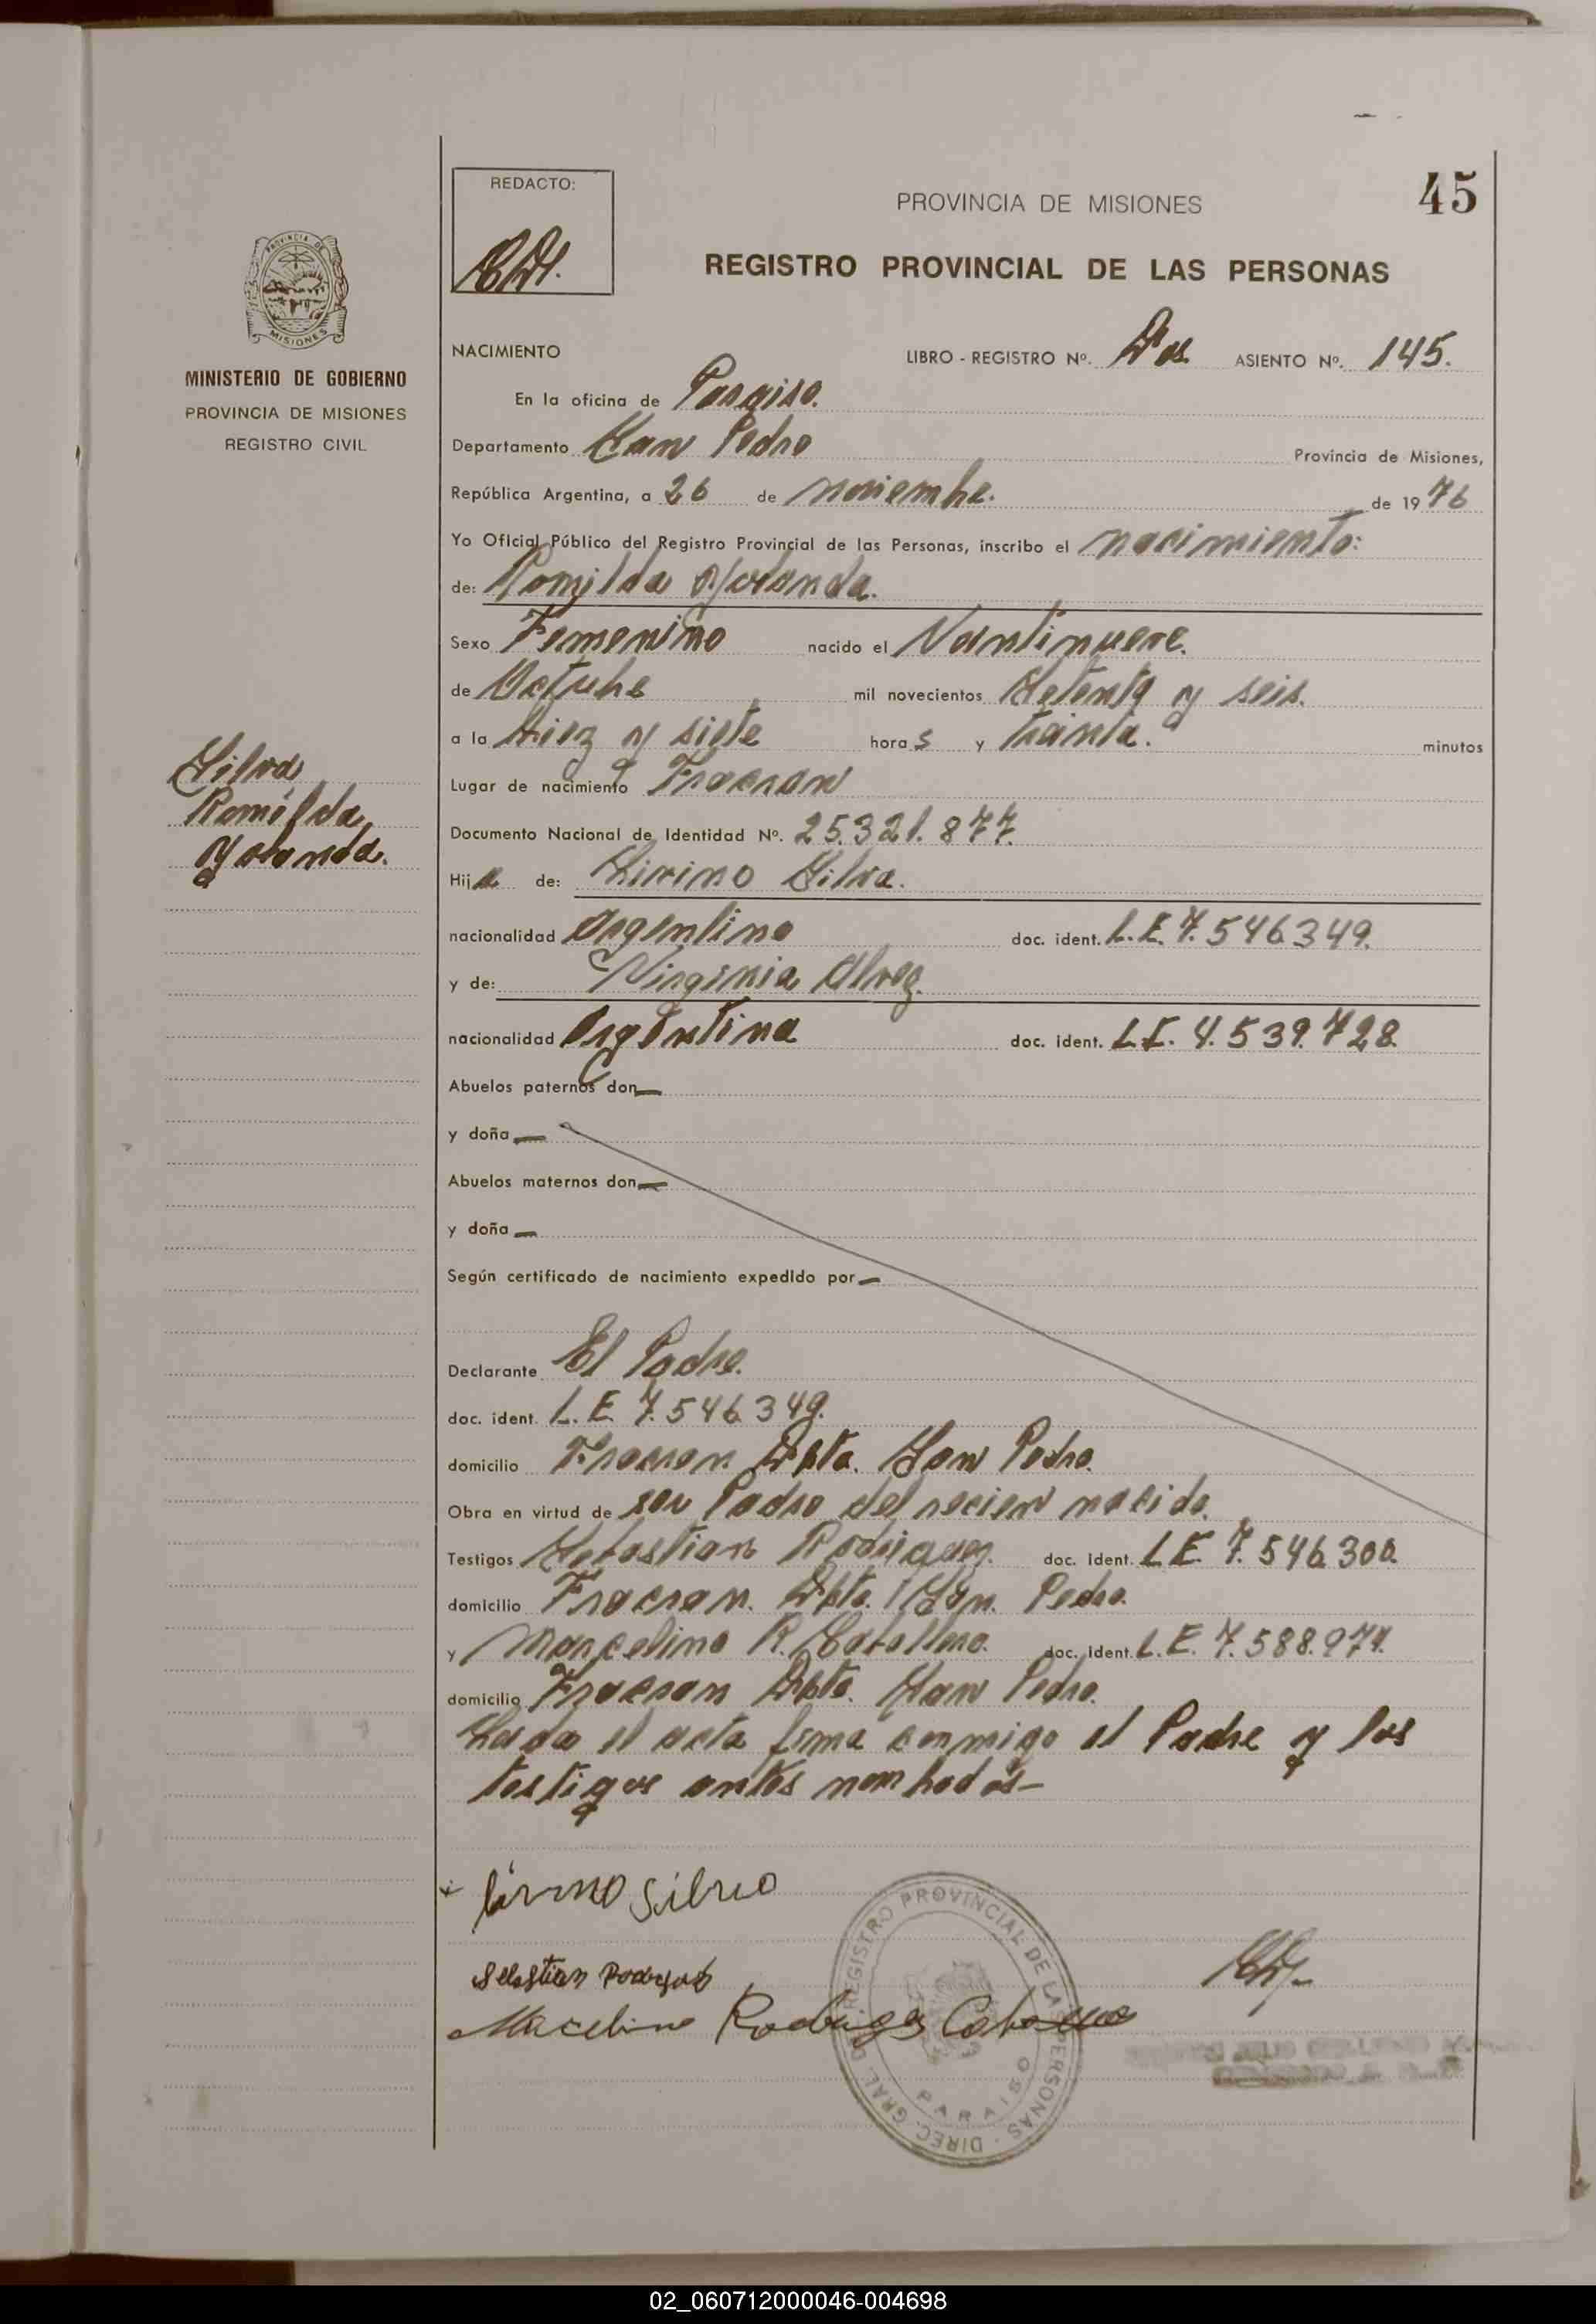 45
REDACTO:
PROVINCIA DE MISIONES
REGISTRO PROVINCIAL DE LAS PERSONAS
PROVINCIA DE
MISIONES
MINISTERIO DE GOBIERNO
PROVINCIA DE MISIONES
REGISTRO CIVIL
NACIMIENTO LIBRO - REGISTRO Nº. Dos. ASIENTO Nº. 145.
En la oficina de Paraiso.
Departamento San Pedro Provincia de Misiones,
República Argentina, a 26 de noviembre. de 1976
Yo Oficial Público del Registro Provincial de las Personas, inscribo el nacimiento:
de: Romilda Yolanda.
Sexo Femenino nacido el Vaintinueve.
de Octubre mil novecientos Setenta y seis.
a la diez y siete horas y trainta. minutos
Silva
Romilda
Yolanda.
Lugar de nacimiento Fracran
Documento Nacional de Identidad Nº. 25.321.877.
Hija de: Lirino Silva.
nacionalidad Argentino doc. ident. L.E. 7.546.349.
y de: Virginia Alvez.
nacionalidad Argentina doc. ident. 4.539.728.
Abuelos paternos don —
y doña —
Abuelos maternos don —
y doña —
Según certificado de nacimiento expedido por —
Declarante El Padre.
doc. ident. L.E. 7.546.349.
domicilio Fracran Dpto. San Pedro.
Obra en virtud de ser Padre del recien nacido.
Testigos Sebastian Rodriguez. doc. ident. L.E. 7.546.300.
domicilio Fracran. Dpto. San. Pedro.
y Marcelino R. Caballero. doc. ident. L.E. 7.588.974.
domicilio Fracran Dpto. San Pedro.
Leida el acta firma conmigo el Padre y los
testigos antes nombados—
lirino Silvio
Sebastian
Marcelino Rodriguez Caballero
DIREC. GRAL. DEL REGISTRO PROVINCIAL DE LAS PERSONAS
PARAISO
02_060712000046-004698